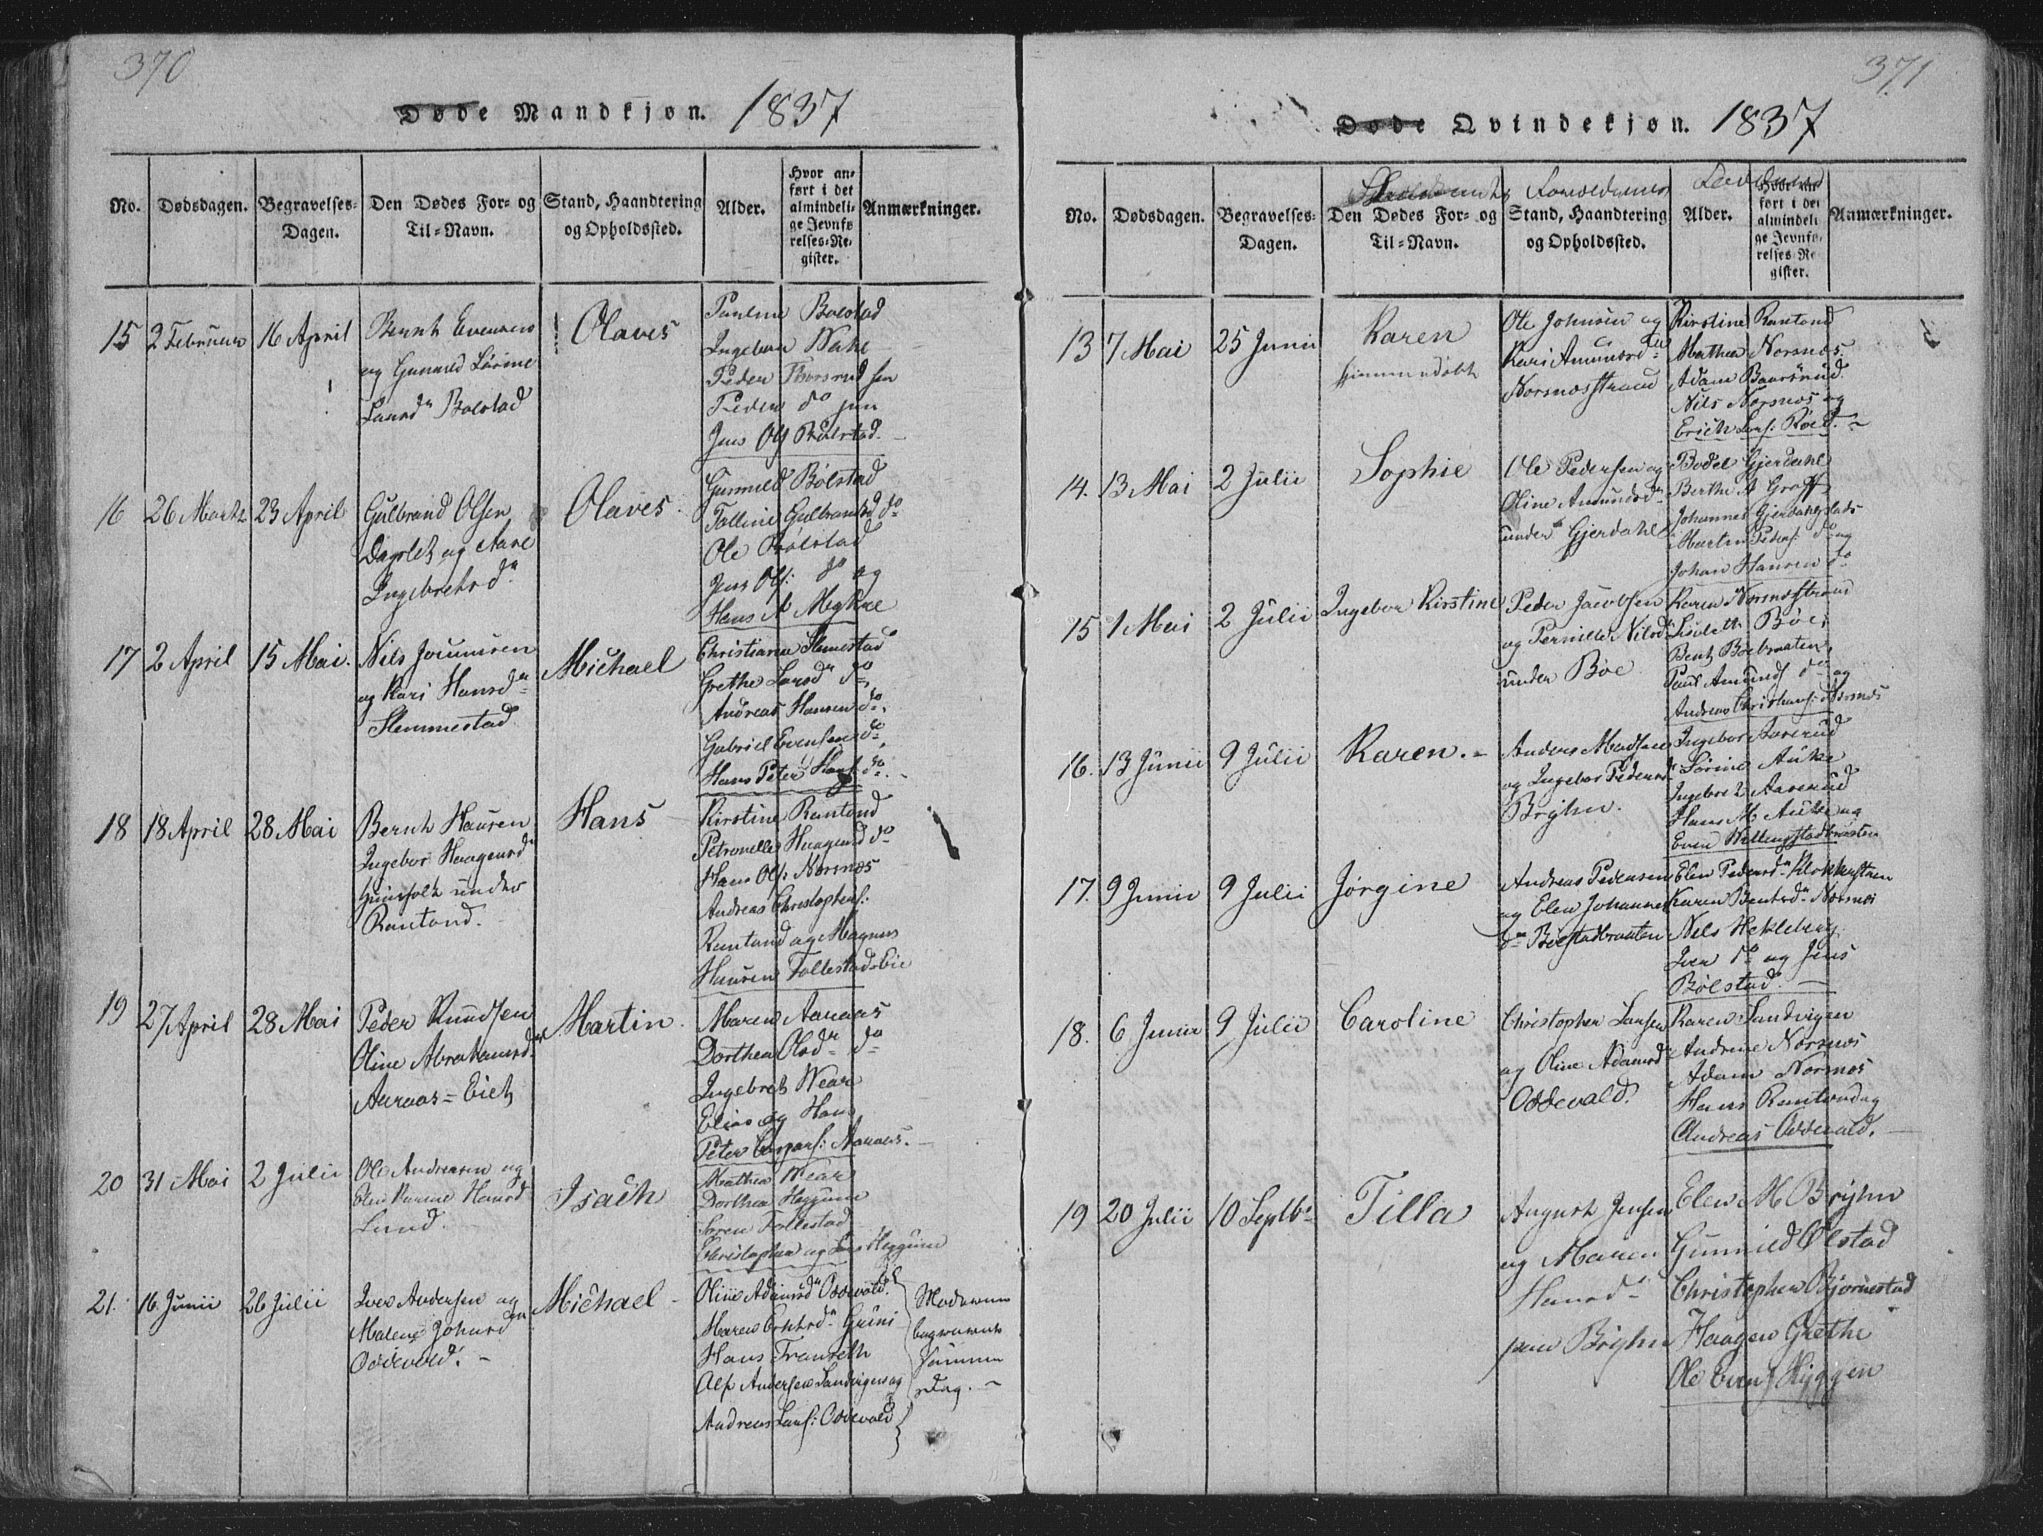 370
Døde Mandkjøn. 1837
No.
Dødsdagen.
Begravelses-
Dagen.
Den Dødes For- og
Til-Navn.
Stand, Haandtering
og Opholdssted.
Alder.
Hvor an-
ført i det
almindeli-
ge Jevnfø-
relses-Re-
gister.
Anmærkninger.
15 2 Februar 16 April
Bernt Evensen
og Gunnild Lovise
Larsdr Bolstad
Olaves
Pauline Bolstad
Ingebor
Peder sen
Peder do jun
Jens Ols Bolstad.
16 26 Marts 23 April
Gulbrand Olsen
og Aase
Ingebretsdr
Olaves
Gunnild Bolstad
Tolline Gulbransd do
Ole Bolstad
Jens Ols: do og
Hans A
17 2 April 15 Mai.
Nils
og Kari Hansdr
Slemmestad
Michael
Christiane Slemestad
Grethe Larsdr do,
Andreas Hansen do,
Gabriel Evensen do,
Hans Peter Hans: do.
18 18 April 28 Mai
Bernt Hansen
Ingebor Haagensdr
Huusfolk under
Rantond.
Hans
Kirstine Rantond
Petronelle Haagensd do
Hans Ols: Norsnæs
Andreas Christophers:
Rantond og Magnus
Hansen Follestad-Eie
19 27 April 28 Mai
Peder Knudsen
Oline Abrahamsdr
Aaraas-Eiet
Martin
Maren Aaraas
Dorthea Olsdr do
Ingebret Wear
Elias og Hans
Peter Caspars: Aaraas.
20 31 Mai 2 Julii
Ole Andreasen og
Elen Hansd
Lund.
Isach
Mathea Wear
Dorthea Heggum
Søren Follestad
Christopher og Lars Heggum
21. 16 Junii 26 Julii
Iver Andersen og
Malene Johnsdr
Oddevald.
Michael
Oline Adamsdr Oddevald.
Maren Grini
Hans Franseth
Alf Andersen Sandvigen og
Andreas Lars: Oddevald
Moderen
begravet
samme
Dag.
371
Døde Qvindekjøn. 1837
Forældrenes
Faddere
No.
Dødsdagen.
Begravelses-
Dagen.
Den Dødes For- og
Til-Navn.
Stand, Haandtering
og Opholdssted.
Alder.
Hvor an-
ført i det
almindeli-
ge Jevnfø-
relses-Re-
gister.
Anmærkninger.
13 7 Mai 25 Junii
Karen
hjemmedøbt
Ole Johnsen og
Kari Amundsdr
Norsnæsstrand
Kirstine Rantond
Mathea Norsnæs
Adam Baarsrud.
Nils Norsnæs og
Erich Lars: Röed.
14. 13 Mai 2 Julii
Sophie
Ole Pedersen og
Oline Amundsdr
under Gjerdahl
Bodel Gjerdahl
Berthe A Graff
Johannes Gjerdahlsplads
Martin Peders: do og
Johan Hansen do
15 1 Mai 2 Julii
Ingebor Kirstine
Peder Jacobsen
og Pernille Nilsdr
under Böe
Karen Norsnæsstrand
Liselett Böe,
Bent Böebraaten,
Paul Amunds do og
Andreas Christians: Norsnæs
16. 13 Junii 9 Julii
Karen.
Anders Madsen
og Ingebor Pedersdr
Bryhn.
Ingebor Aaserud
Sörine Auke
Ingebor L Aaserud
Hans M Auke og
Even
17. 9 Junii 9 Julii
Jørgine
Andreas Pedersen
og Elen Johannes
dr Bölstadbraaten
Elen Pedersdr Klokkerstuen
Karen Bentsdr Norsnæs
Nils Hekleberg,
Iver do og Jens
Bölstad.
18. 6 Junii 9 Julii
Caroline
Christopher Larsen
og Oline Adamsdr
Oddevald.
Karen Sandvigen
Andrine Norsnæs
Adam Norsnæs
Hans Rantond og
Andreas Oddevald.
19 20 Julii 10 Septbr
Tilla
August Jensen
og Maren
Hansdr
paa Bryhn
Elen M Bryhn
Gunnild Ölstad
Christopher Bjørnestad
Haagen Grethe
Ole Evens Hyggen